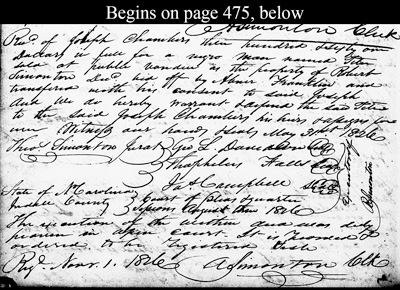 Begins on page 475, below
A Simonton Clk
Recd. of Joseph Chambers three hundred sixty one
Dollars in full for a negro man named
sold at public vendue as the property of Robert
Simonton Decd. bid off by Abner Franklin and
transfered with his consent to said Joseph
And we do hereby warrant & defend the said Title
to the said Joseph Chambers his heirs & assigns for
ever Witness our hands & seals May 31st 1826
Theo. Simonton Jurat Geo. L. Davidson
Theophilus Falls
Jas Campbell
Executors of
R Simonton
State of N Carolina
Iredell County
Court of Pleas & Quarter
Sessions August Term 1826
The execution of the within was duly
proven in open court & is
ordered to be Registered
Regd. Novr. 1. 1826 A Simonton Clk